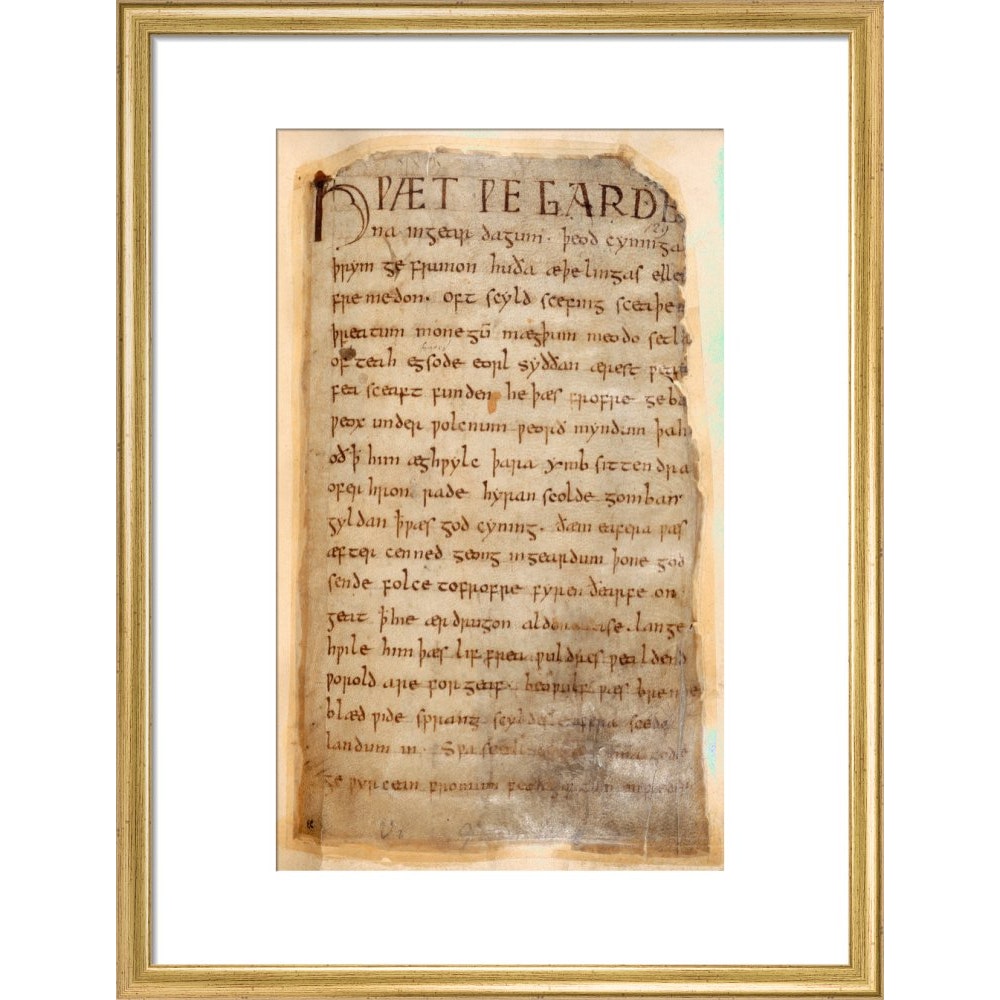 HǷÆT ǷE GARDE
129
na ingear dagum. þeod cyninga
þrym ge frunon huða æþelingas elle
fremedon. oft scyld scefing sceaþe
þreatum monegū mægþum meodo setla
of teah egsode eorl syððan ærest ƿear
fea sceaft funden he þæs frofre geba
ƿeox under ƿolcnum ƿeorð myndum þah
oðꝥ him æghƿylc þara ymb sittendra
ofer hron rade hyran scolde gomban
gyldan ꝥƿæs god cyning. ðæm eafera ƿæs
æfter cenned geong ingeardum þone god
sende folce tofrofre fyren ðearfe on
geat ꝥhie ær drugon aldor ase. lange
hƿile him þæs lif frea ƿuldres ƿealdend
ƿorold are for geaf. beoƿulf ƿæs breme
blæd ƿide sprang scyldes eafera scede
landum in. Sƿa sceal guma gode
ge ƿyrcean fromum feoh